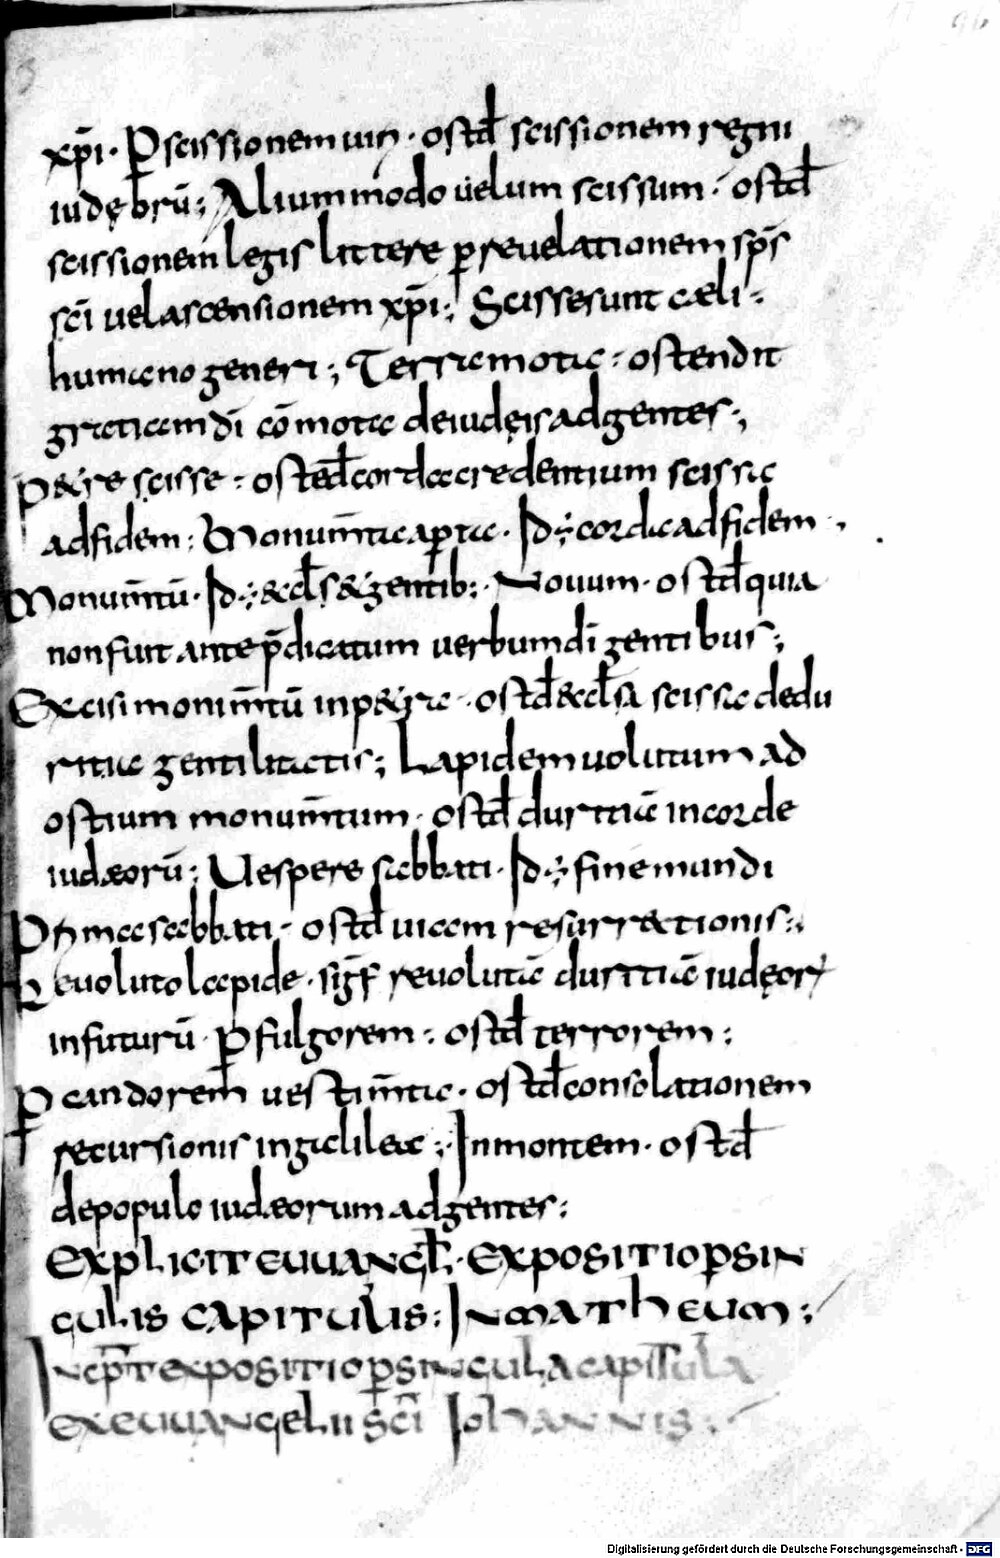 xp̄i· P̲ scissionem uin̄· ostd̄ scissionem regni
iudębrū; Alium modo uelum scissum· ostd̄
scissionem legis littere ꝑ reuelationem sp̄s
sc̄i uel ascensionem xp̄i; Scisse sunt cæli·
humano generi; Terra mota· ostendit
gratiam dī cōmota de iudęis ad gentes;
P&re scisse· osted̄ corda credentium scissa
ad fidem; Monum̄ta aꝑta· Id·÷ corda ad fidem·,
Monum̄tū· Id·÷ &cl̄s & gentib; Nouum· ostd̄ quia
non fuit ante p̄dicatum uerbum dī gentibus;
Excisi monim̄tū in p&ra· ostd̄ &cl̄sa scissa de du
ritia gentilitatis; Lapidem uolutum ad
ostium monum̄tum· ostd̄ duritiā in corde
iudæorū; Uespere sabbati· Id·÷ fine mundi
Prima sabbati· ostd̄ uicem resurrectionis;
Reuoluto lapide· sigf̄ reuolutā duritiā iudęorꝝ
in futurū· P̲ fulgorem· ostd̄ terrorem;
P̲ candorem uestim̄ta· ostd̄ consolationem
recursionis in galileae; In montem· ostd̄
de populo iudæorum ad gentes;
EXPLICIT EUUANGL̄· EXPOSITIO ꝑ SIN
GULIS CAPITULIS; IN MATHEUM;
INCP̄T EXPOSITIO ꝑ SINGULA CAPITULA
EX EUUANGELII SC̄I IOHANNIS·
Digitalisierung gefördert durch die Deutsche Forschungsgemeinschaft - DFG